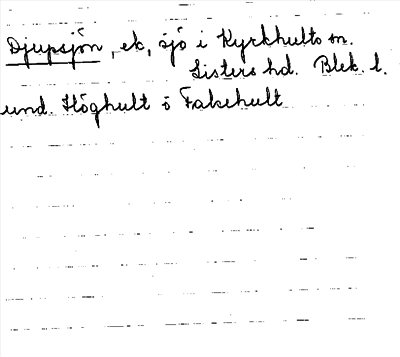 Djupsjön, ek, sjö i Kyrkhults sn.
Listers hd. Blek. l.
und. Höghult o Fakehult